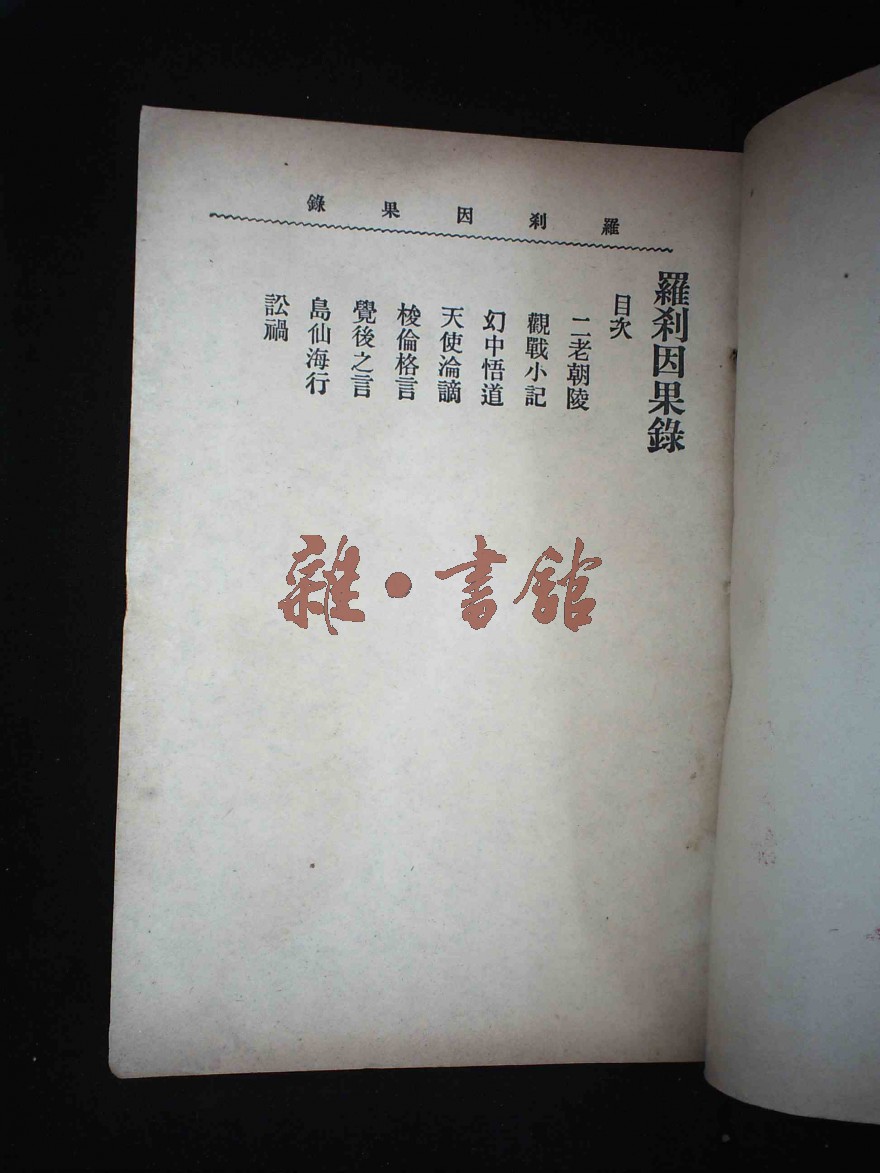 羅刹因果錄
羅刹因果錄
目次
二老朝陵
觀戰小記
幻中悟道
天使淪謫
梭倫格言
覺後之言
島仙海行
訟禍
雜·書館